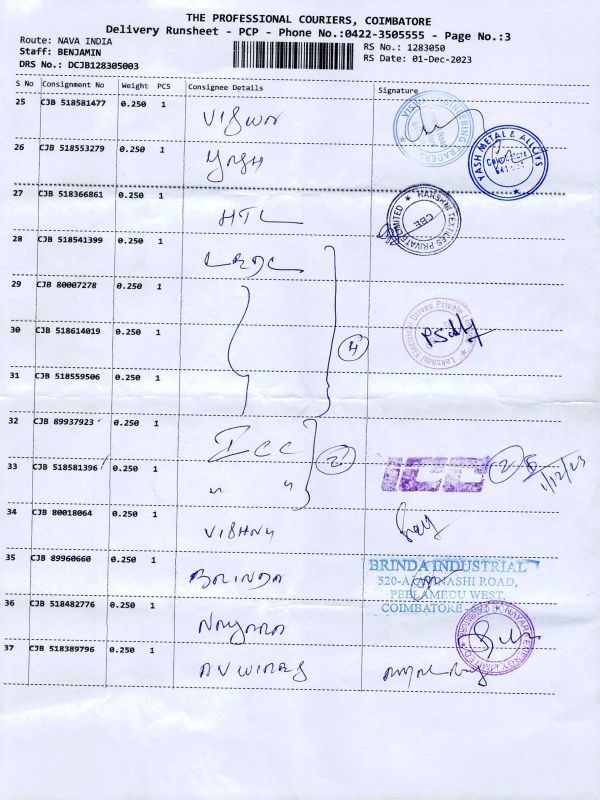 THE PROFESSIONAL COURIERS, COIMBATORE
Delivery Runsheet - PCP - Phone No.:0422-3505555 - Page No.:3
Route: NAVA INDIA
RS No.: 1283050
Staff: BENJAMIN
RS Date: 01-Dec-2023
DRS No.: DCJB128305003
S No Consignment No Weight PCS Consignee Details Signature
25 CJB 518581477 0.250 1 VISWA
26 CJB 518553279 0.250 1 YASH YASH METAL & ALLOYS
27 CJB 518366861 0.250 1 HTL HARSHNI TEXTILES PRIVATE LIMITED CBE
28 CJB 518541399 0.250 1 LEDL
29 CJB 80007278 0.250 1
30 CJB 518614019 0.250 1 4 Lakshmi Electrical Drives Private
31 CJB 518559506 0.250 1
32 CJB 89937923 0.250 1 ICC
33 CJB 518581396 0.250 1 " " 2 ICC 2 1/12/23
34 CJB 80018064 0.250 1 VISHNU
35 CJB 89960660 0.250 1 BRINDA BRINDA INDUSTRIAL
PEELAMEDU WEST,
COIMBATORE
36 CJB 518482776 0.250 1 NAYARA NAYARA ENERGY LIMITED
37 CJB 518389796 0.250 1 AV WIRES